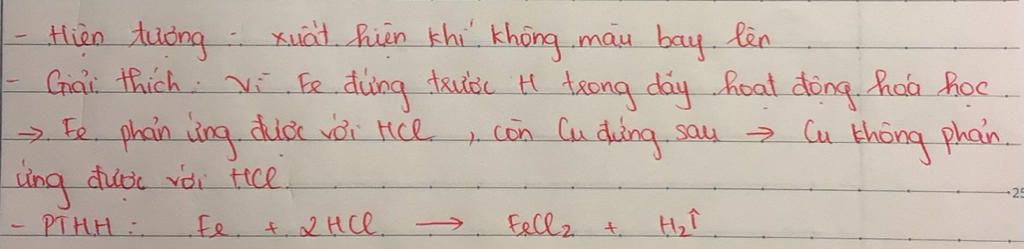 - Hiện tượng : xuất hiện khí không màu bay lên
- Giải thích : Vì Fe đứng trước H trong dãy hoạt động hoá học
→ Fe phản ứng được với HCl , còn Cu đứng sau → Cu không phản
ứng được với HCl
- PTHH : Fe + 2HCl → FeCl₂ + H₂↑
25